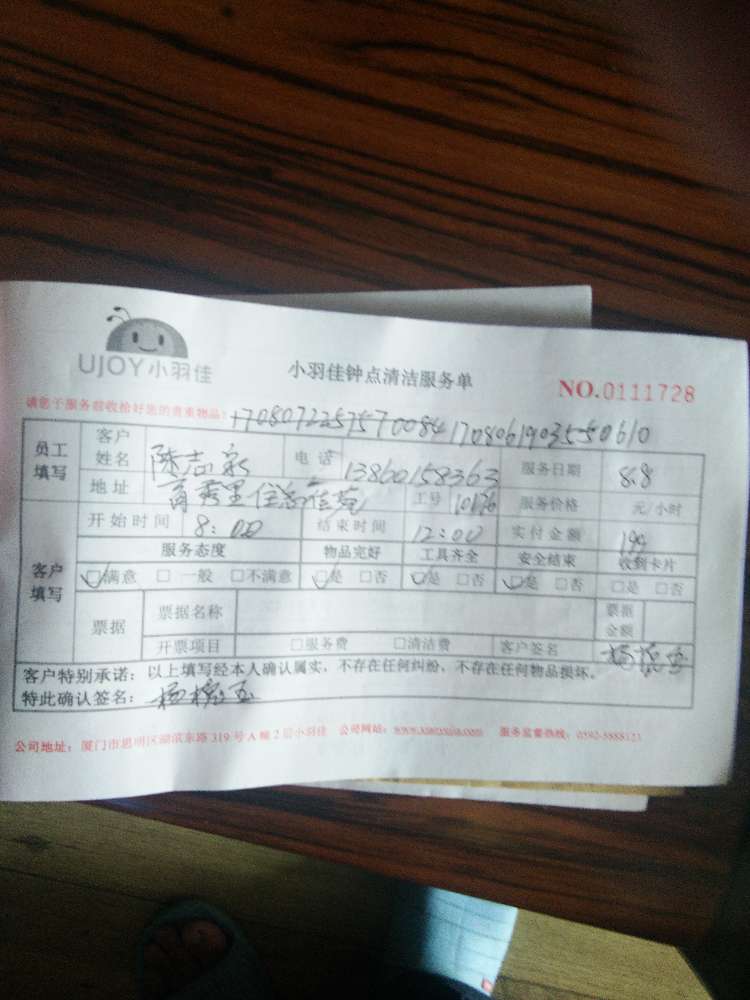 UJOY小羽佳
小羽佳钟点清洁服务单
NO.0111728
请您于服务前收拾好您的贵重物品:
员工填写 客户姓名 陈志 电话 13860158363 服务日期 8.8
地址 工号 10176 服务价格 元/小时
开始时间 8:00 结束时间 12:00 实付金额 199
客户填写 服务态度 物品完好 工具齐全 安全结束 收到卡片
☑满意 □一般 □不满意 ☑是 □否 ☑是 □否 ☑是 □否 □是 □否
票据 票据名称 票据金额
开票项目 □服务费 □清洁费 客户签名
客户特别承诺:以上填写经本人确认属实,不存在任何纠纷,不存在任何物品损坏。
特此确认签名:
公司地址:厦门市思明区湖滨东路319号A幢2层小羽佳 公司网站: 服务监督热线:0592-5888123